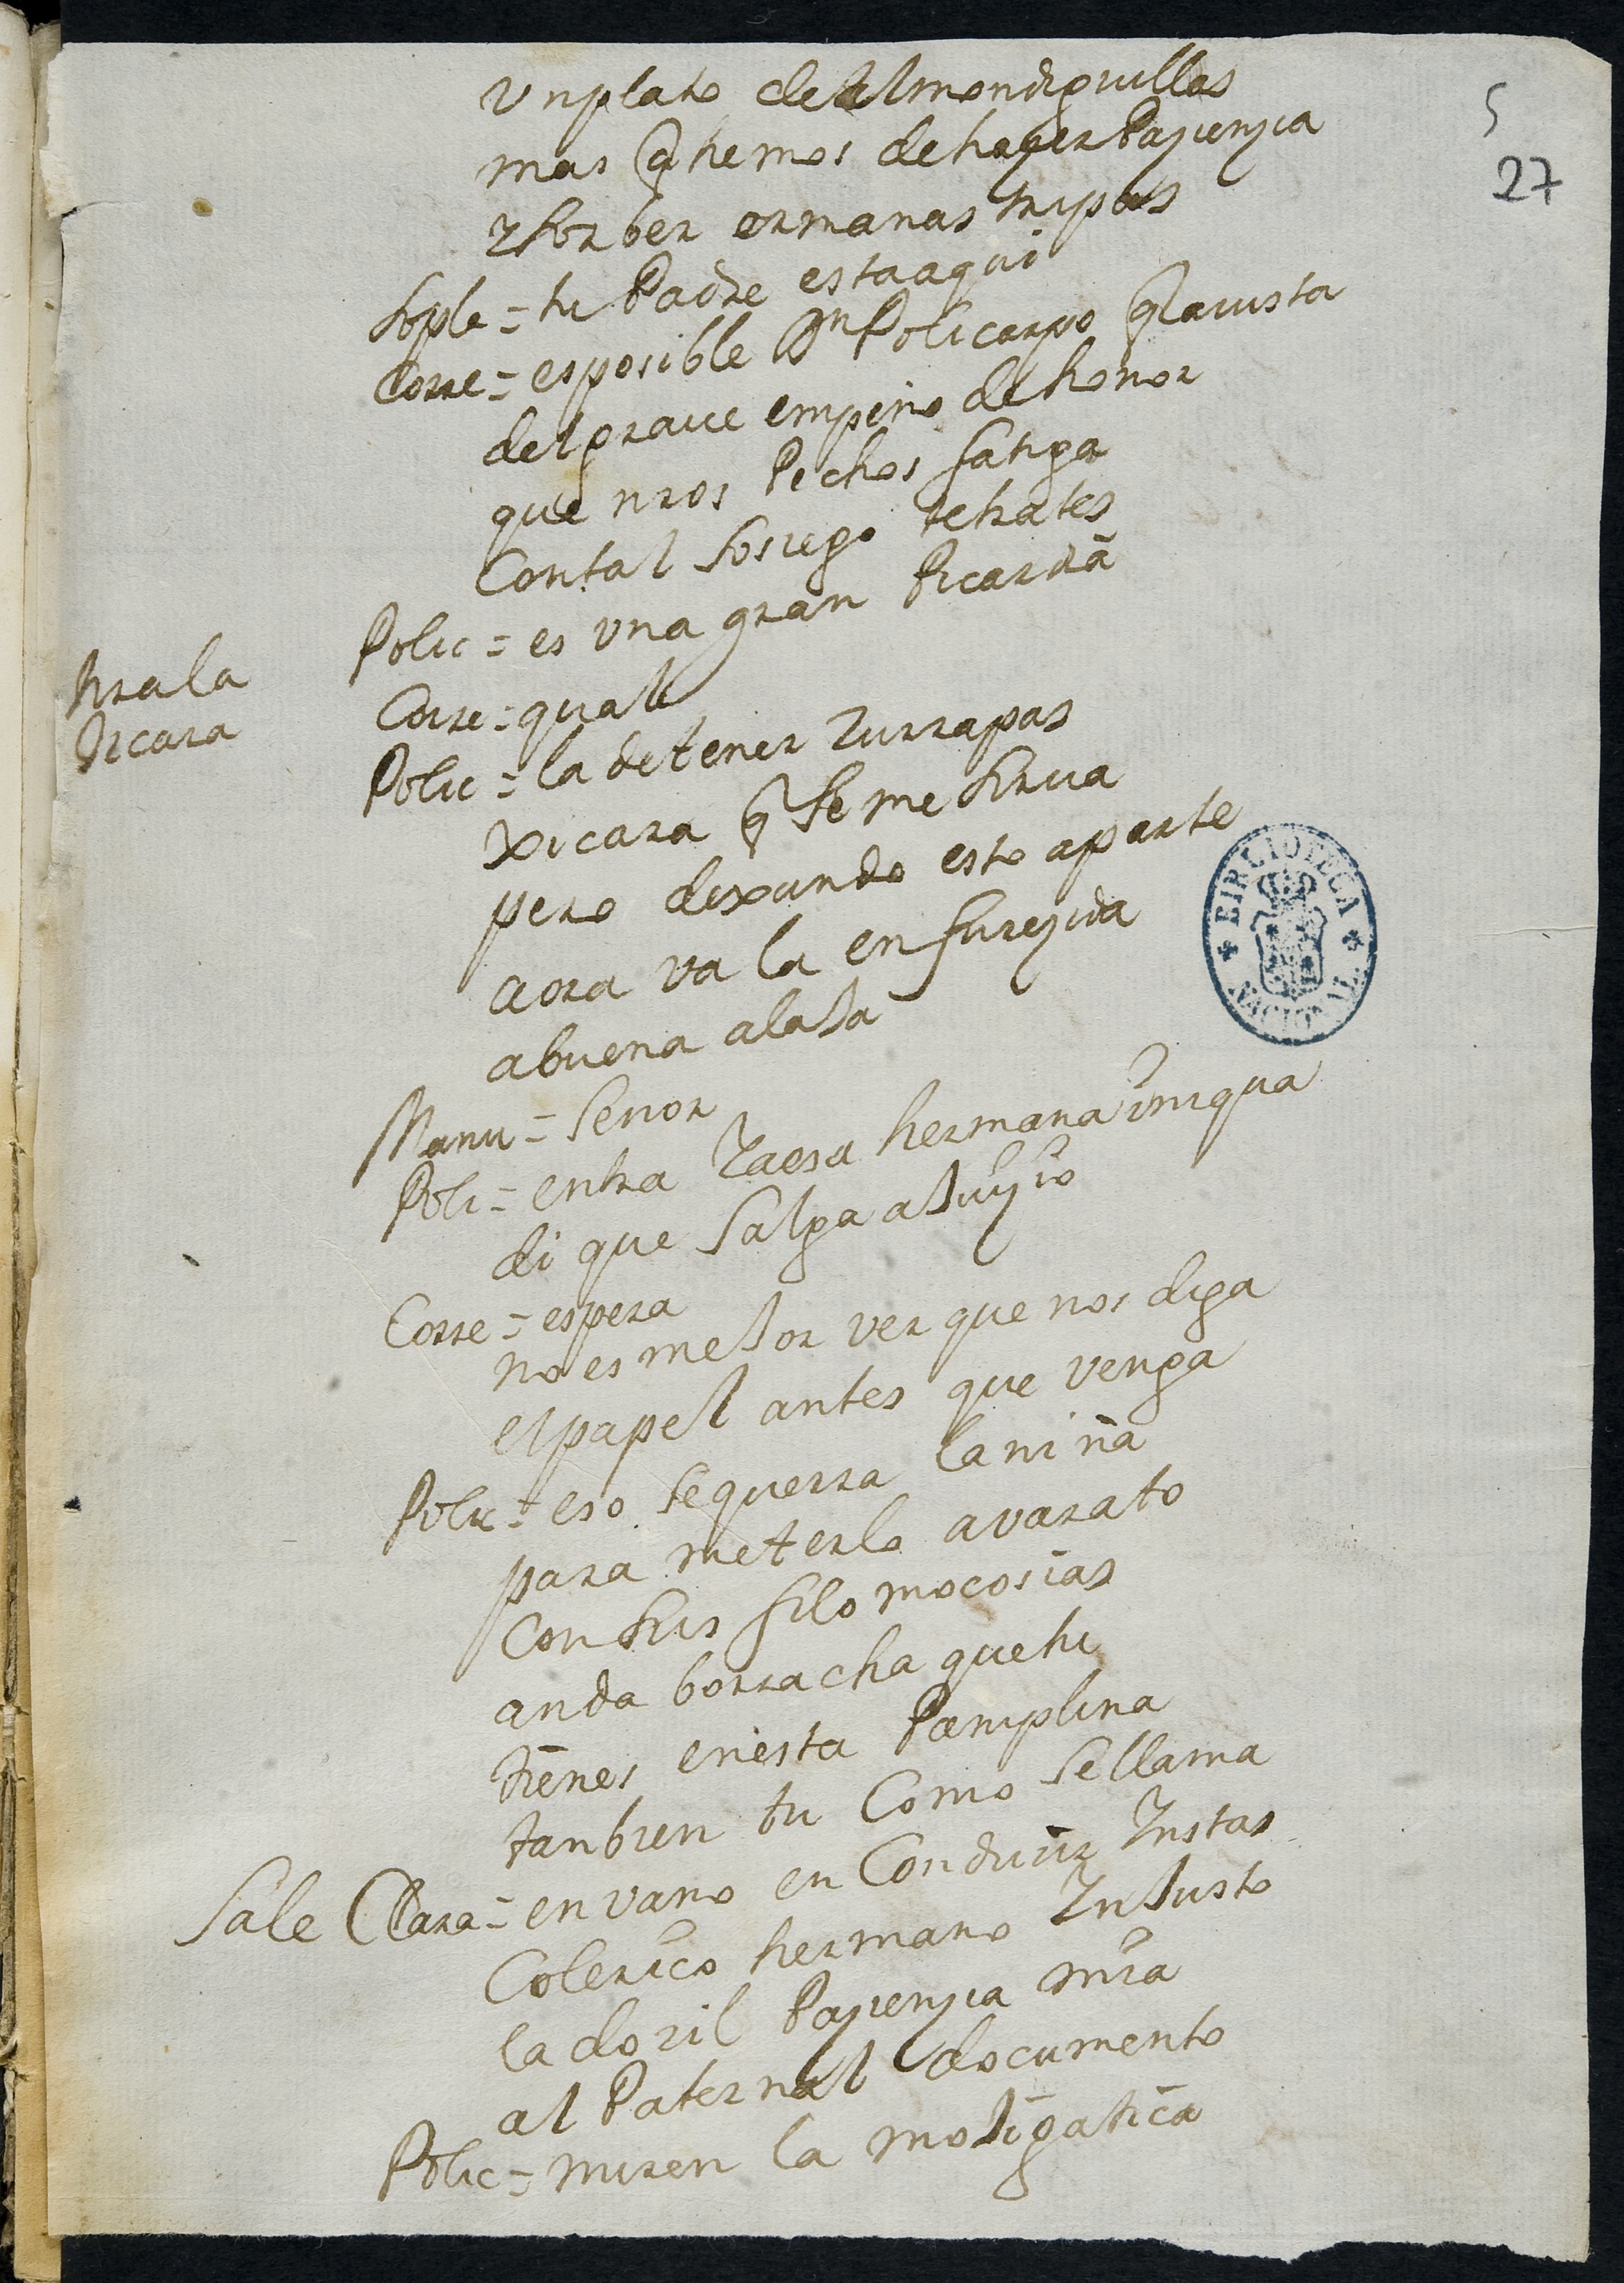 5
27
vn plato de Almondiguillas
mas q hemos de hazer Paçiençia
sorber ermanas tripas
sople = tu Padre esta aqui
Corre = es posible Dn Policarpo q a vista
del graue empeño de honor
que nros Pechos fatiga
Con tal sosiego te trates
Polic = es vna gran Picardia
tira la
Xicara
Corre = qual
Polic = la de tener Zurrapas
Xicara q se me sirua
pero dexando esto aparte
aora va la enfureçida
a buena alaJa
Manu = señor
Poli = entra Ya esa hermana iniqua
di que salga a Juyçio
Corre = espera
no es meJor ver que nos diga
el papel antes que venga
Polic = eso se querra la niña
para meterlo a varato
Con sus filomocosias
anda borracha que tu
tienes en esta Pamplina
tanbien tu Como se llama
Sale Clara = en vano en Conduçir Ynstas
Colerico hermano YnJusto
la doZil Paçiençia mia
al Paternal documento
Polic = miren la moJigatica
BIBLIOTECA
NACIONAL